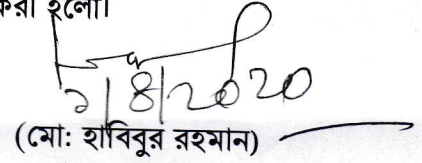 করা হলো।
২/৪/২০২০
(মোঃ হাবিবুর রহমান)